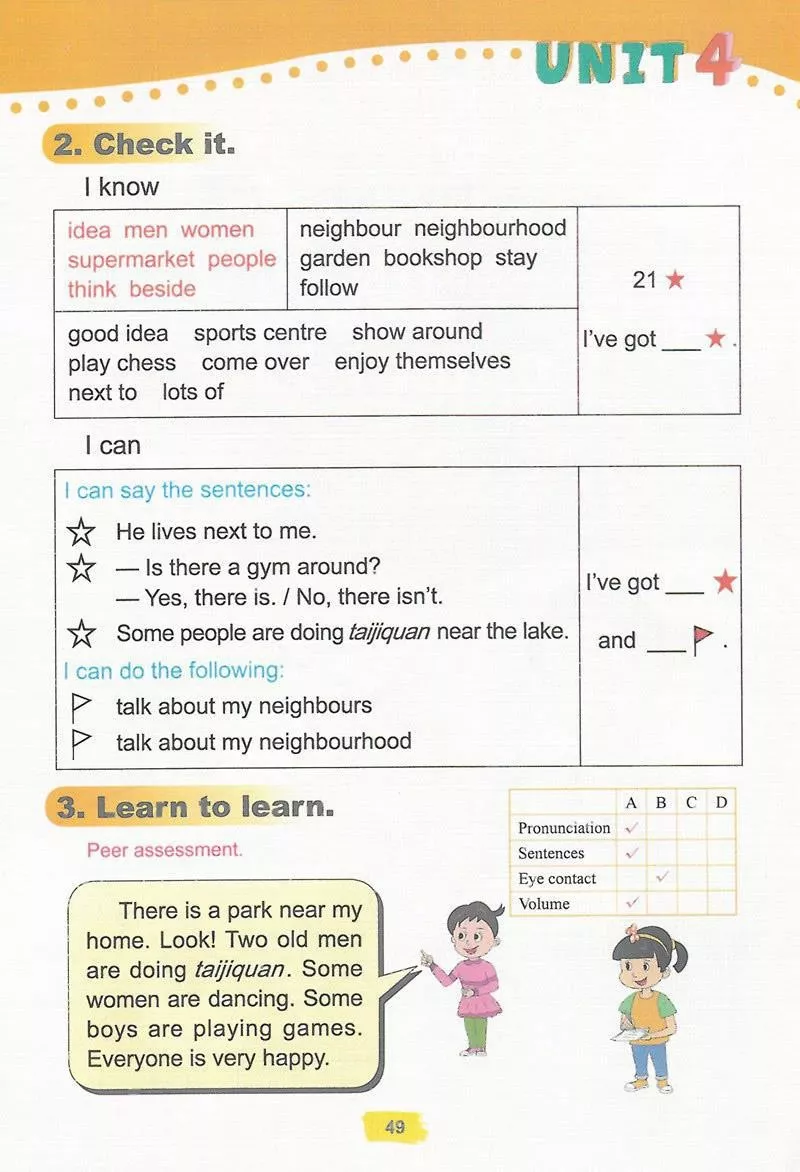 UNIT 4
2. Check it.
I know
idea men women
supermarket people
think beside
neighbour neighbourhood
garden bookshop stay
follow
21 ★
I've got ___ ★ .
good idea sports centre show around
play chess come over enjoy themselves
next to lots of
I can
I can say the sentences:
☆ He lives next to me.
☆ — Is there a gym around?
— Yes, there is. / No, there isn't.
☆ Some people are doing taijiquan near the lake.
I can do the following:
talk about my neighbours
talk about my neighbourhood
I've got ___ ★
and ___ .
3. Learn to learn.
Peer assessment.
A B C D
Pronunciation ✓
Sentences ✓
Eye contact ✓
Volume ✓
There is a park near my
home. Look! Two old men
are doing taijiquan. Some
women are dancing. Some
boys are playing games.
Everyone is very happy.
49